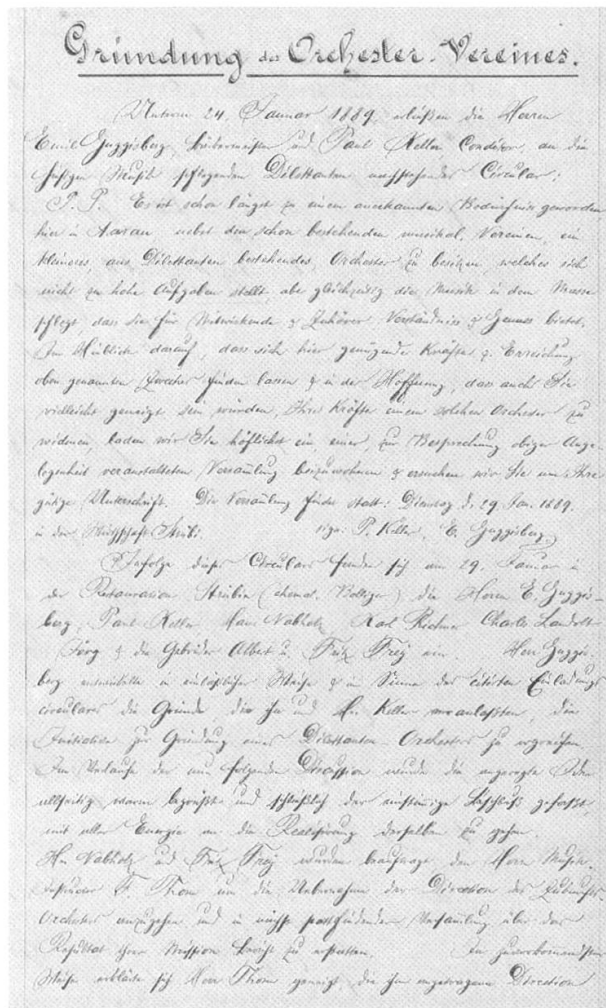 Gründung des Orchester-Vereines.
Unterm 24. Januar 1889 erließen die Herren
Emil Guggisberg, und Paul Keller Conditor, an die
hiesigen Musik pflegenden Dilettanten nachstehendes Circular:
P. P. Es ist schon längst zu einem anerkannten Bedürfniß geworden
hier in Aarau nebst den schon bestehenden musikal. Vereinen, ein
kleineres aus Dilettanten bestehendes Orchester zu besitzen, welches sich
nicht zu hohe Aufgaben stellt, aber gleichzeitig die Musik in dem Masse
pflegt, dass sie für Mitwirkende & Zuhörer Verständniss & Genuss bietet.
Im Hinblick darauf, dass sich hier genügende Kräfte z. Erreichung
oben genannten Zweckes finden lassen & in der Hoffnung, dass auch Sie
vielleicht geneigt sein würden, Ihre Kräfte einem solchen Orchester zu
widmen, laden wir Sie höflichst ein, einer, zur Besprechung obiger Ange-
legenheit veranstalteten Versamlung beizuwohnen & ersuchen wir Sie um Ihre
gütige Unterschrift. Die Versamlung findet statt: Dienstag d. 29. Jan. 1889.
in der Wirthschaft sign. P. Keller, E. Guggisberg.
Infolge dieses Circulars fanden sich am 29. Januar in
der Restauration (ehemal. Bolliger) die Herren E. Guggis-
berg, Paul Keller Hans Nabholz, Karl Richner Charles Landolt
& die Gebrüder Albert u. Fritz Frey ein. Herr Guggis-
berg entwickelte in einläßlicher Weise & im Sinne des citirten Einladungs
circulares die Gründe, die ihn und Hn. Keller veranlaßten, die
Initiative zur Gründung eines Dilettanten-Orchesters zu ergreifen.
Im Verlaufe der nun folgenden Discussion wurde die angeregte Idee
allseitig warm begrüßt und schließlich der einstimmige Beschluß gefaßt,
mit aller Energie an die Realisirung derselben zu gehen.
Hn Nabholz und Fritz Frey wurden beauftragt, den Herrn Musik-
F. Thom um die Uebernahme der Direction des
Orchesters anzugehen und in nächst stattfindender Versamlung über das
Resultat ihrer Mission Bericht zu erstatten. In zuvorkommendster
Weise erklärte sich Herr Thom geneigt, die ihm angetragene Direction